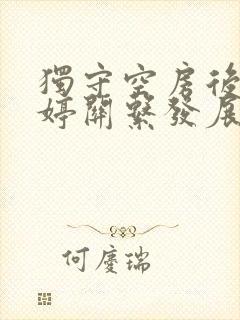 獨守空房後
婷關繫發展
何慶瑞